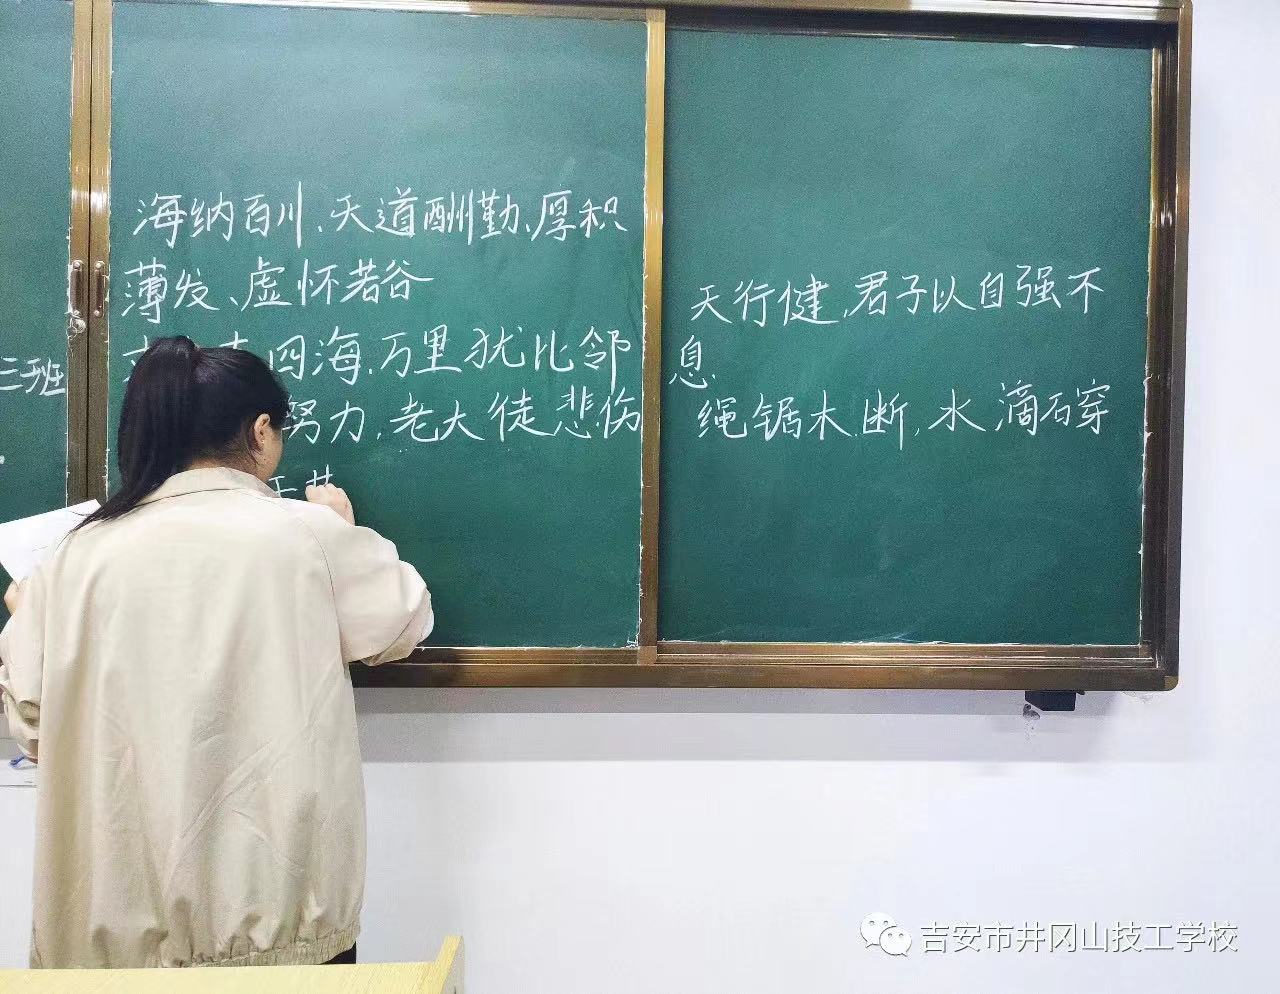 三班
海纳百川、天道酬勤、厚积
薄发、虚怀若谷
四海，万里犹比邻
努力，老大徒悲伤
天行健，君子以自强不
息.
绳锯木断，水滴石穿
吉安市井冈山技工学校